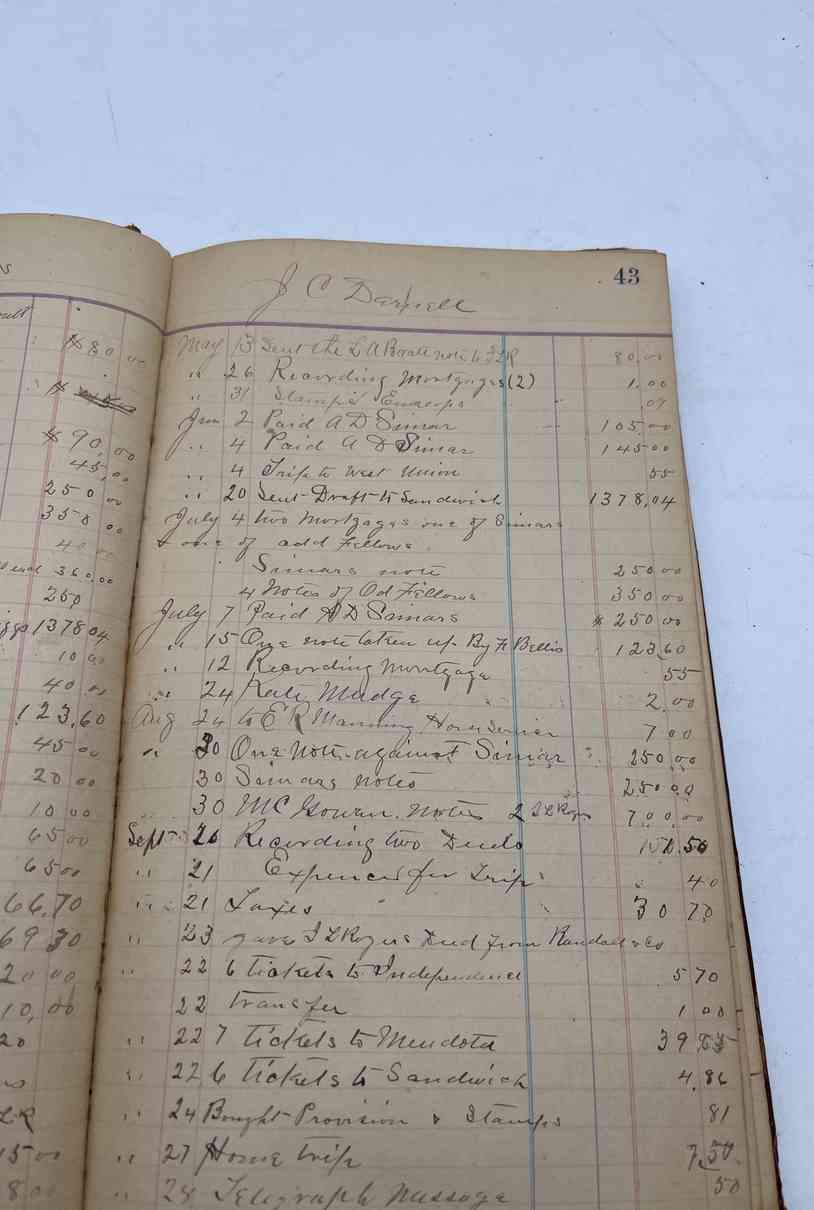 $80.00
$
$90.00
45.00
250 00
350 00
40 00
360.00
250
1378 04
10 00
40 00
123.60
45 00
20 00
10 00
65 00
65 00
66.70
69 30
20 00
10,00
20
LR
15 00
8 00
43
J C Darnell
May 13 Sent the L A note to I L R 80.00
" 26 Recording Mortgages (2) 1.00
" 31 Stamps & 07
Jun 2 Paid A D Simar 105.00
" 4 Paid A D Simar 145 00
" 4 Trip to West Union 55
" 20 Sent Draft to Sandwich 1378,04
July 4 two Mortgages one of Simars
& one of odd Fellows.
Simars note 250 00
4 Notes of Od Fellows 350.00
July 7 Paid A D Simars $250 00
" 15 One note taken up By F Bellis 123,60
" 12 Recording Mortgage 55
" 24 Kate Mudge 2.00
Aug 24 to E R Manning 7 00
" 30 One Note against Simar 250.00
30 Simars notes 250 00
30 McGowen. Notes 2 I L Rogs 700.00
Sept 26 Recording two Deeds 50
" 21 Expences for Trip 40
" 21 Taxes 30 70
" 23 gave I L Rogers Deed from Randall & Co
" 22 6 tickets to Independence 5 70
22 transfer 1 00
" 22 7 tickets to Mendota 39
" 22 6 tickets to Sandwich 4.86
" 24 Bought Provision & Stamps 81
" 27 Home trip 7.50
" 28 Telegraph Message 50